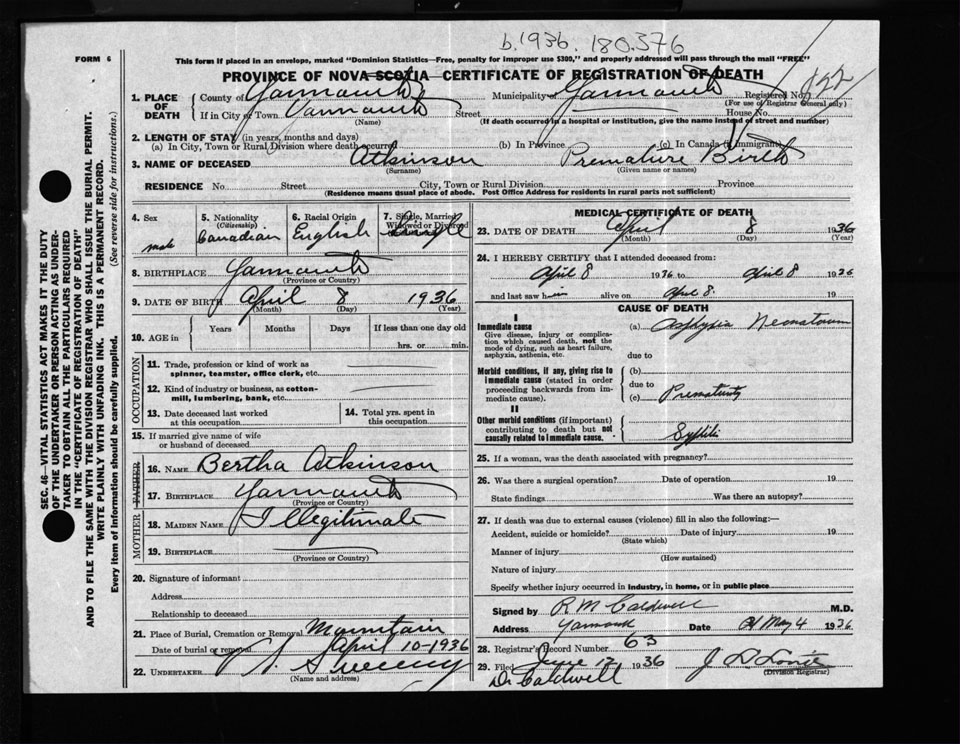 b.1936. 180.376
FORM 6
This form if placed in an envelope, marked "Dominion Statistics—Free, penalty for improper use $300," and properly addressed will pass through the mail "FREE"
PROVINCE OF NOVA SCOTIA—CERTIFICATE OF REGISTRATION OF DEATH
1. PLACE OF DEATH County of Yarmouth Municipality of Yarmouth Registered No. 122
(For use of Registrar General only)
If in City or Town Yarmouth Street House No.
(Name) (If death occurred in a hospital or institution, give the name instead of street and number)
2. LENGTH OF STAY (in years, months and days)
(a) In City, Town or Rural Division where death occurred (b) In Province (c) In Canada (if immigrant)
3. NAME OF DECEASED Atkinson Premature Birth
(Surname) (Given name or names)
RESIDENCE No. Street City, Town or Rural Division Province
(Residence means usual place of abode. Post Office Address for residents in rural parts not sufficient)
4. Sex male
5. Nationality (Citizenship) Canadian
6. Racial Origin English
7. Single, Married, Widowed or Divorced Single
8. BIRTHPLACE Yarmouth
(Province or Country)
9. DATE OF BIRTH April 8 1936
(Month) (Day) (Year)
10. AGE in Years Months Days If less than one day old
hrs. or min.
OCCUPATION
11. Trade, profession or kind of work as spinner, teamster, office clerk, etc.
12. Kind of industry or business, as cotton-mill, lumbering, bank, etc.
13. Date deceased last worked at this occupation
14. Total yrs. spent in this occupation
15. If married give name of wife or husband of deceased
FATHER
16. NAME Bertha Atkinson
17. BIRTHPLACE Yarmouth
(Province or Country)
MOTHER
18. MAIDEN NAME Illegitimate
19. BIRTHPLACE
(Province or Country)
20. Signature of informant
Address
Relationship to deceased
21. Place of Burial, Cremation or Removal Mountain
Date of burial or removal April 10-1936
22. UNDERTAKER Sweeny
(Name and address)
MEDICAL CERTIFICATE OF DEATH
23. DATE OF DEATH April 8 1936
(Month) (Day) (Year)
24. I HEREBY CERTIFY that I attended deceased from:
April 8 1936 to April 8 1936
and last saw him alive on April 8. 19
CAUSE OF DEATH
I
Immediate cause
Give disease, injury or complication which caused death, not the mode of dying, such as heart failure, asphyxia, asthenia, etc.
(a) Asphyxia Neonatorum
due to
Morbid conditions, if any, giving rise to immediate cause (stated in order proceeding backwards from immediate cause).
(b)
due to
(c) Prematurity
II
Other morbid conditions (if important) contributing to death but not causally related to immediate cause.
Syphilis
25. If a woman, was the death associated with pregnancy?
26. Was there a surgical operation? Date of operation 19
State findings Was there an autopsy?
27. If death was due to external causes (violence) fill in also the following:—
Accident, suicide or homicide? Date of injury 19
(State which)
Manner of injury
(How sustained)
Nature of injury
Specify whether injury occurred in industry, in home, or in public place
Signed by R M Caldwell M.D.
Address Yarmouth Date May 4 1936
28. Registrar's Record Number 63
29. Filed June 12 1936
(Division Registrar)
Dr Caldwell
SEC. 46—VITAL STATISTICS ACT MAKES IT THE DUTY
OF THE UNDERTAKER OR PERSON ACTING AS UNDER-
TAKER TO OBTAIN ALL THE PARTICULARS REQUIRED
IN THE "CERTIFICATE OF REGISTRATION OF DEATH"
AND TO FILE THE SAME WITH THE DIVISION REGISTRAR WHO SHALL ISSUE THE BURIAL PERMIT.
WRITE PLAINLY WITH UNFADING INK. THIS IS A PERMANENT RECORD.
Every item of information should be carefully supplied. (See reverse side for instructions.)